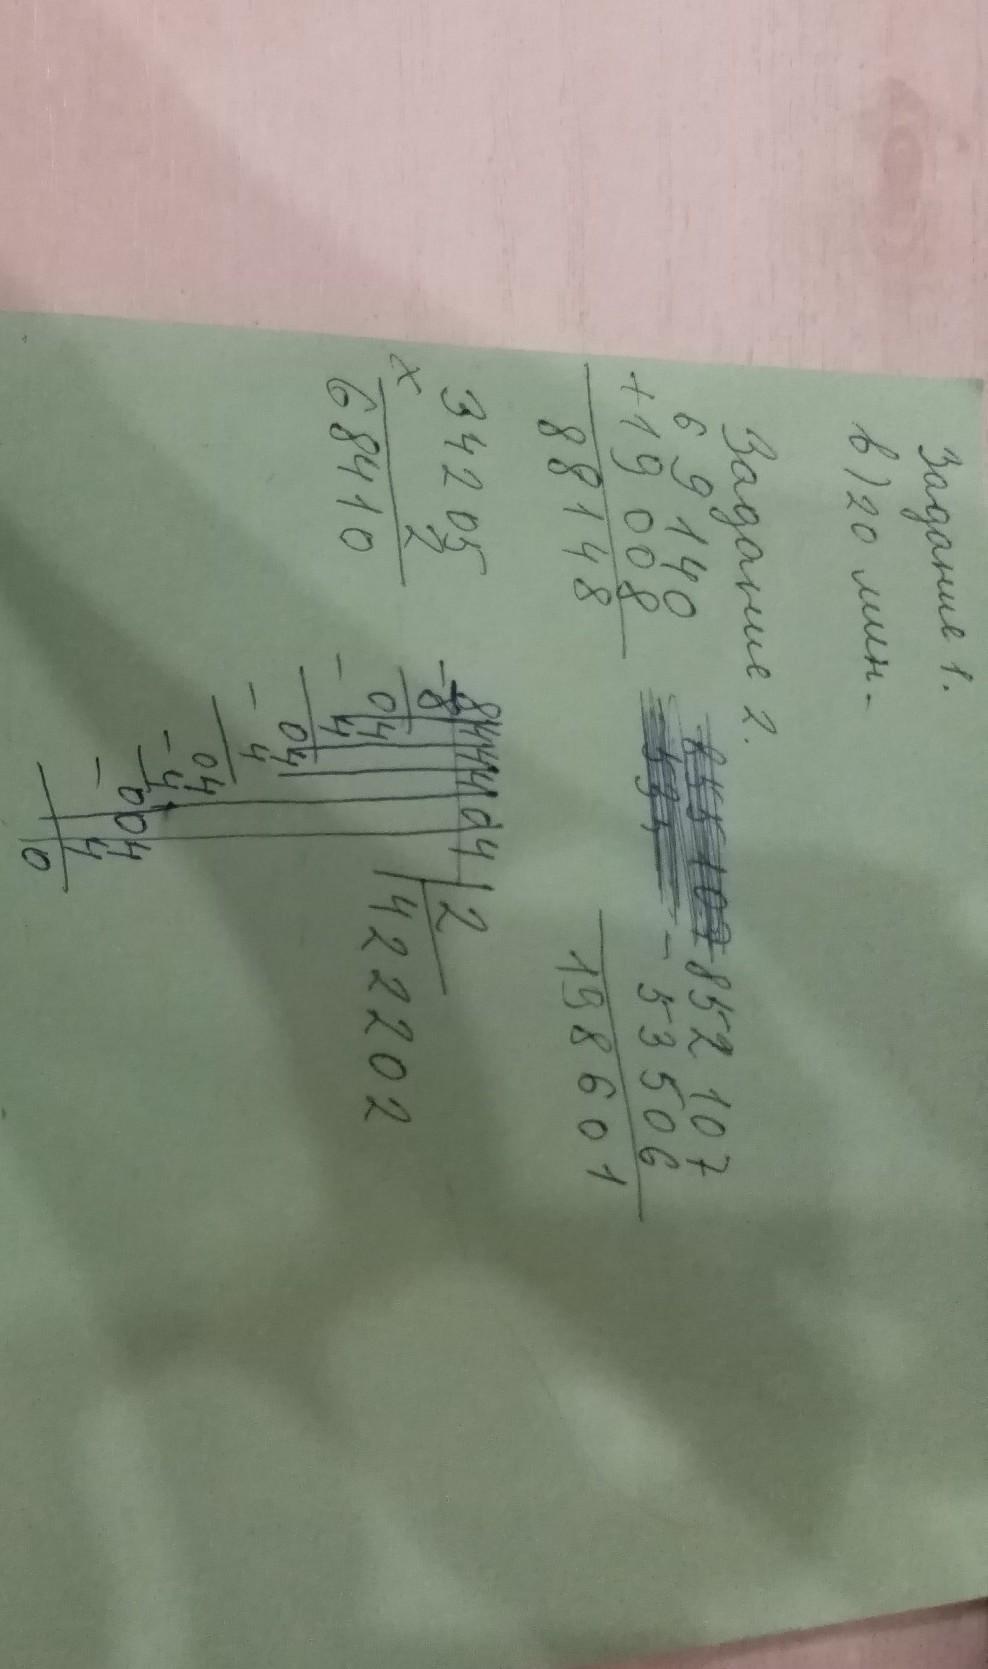 Задание 1.
в) 20 мин.
Задание 2.
69140
+19 008
88148
852 107
- 53506
198601
34205
x 2
68410
844404 | 2
422202
- 8
04
- 4
04
- 4
04
- 4
004
- 4
0